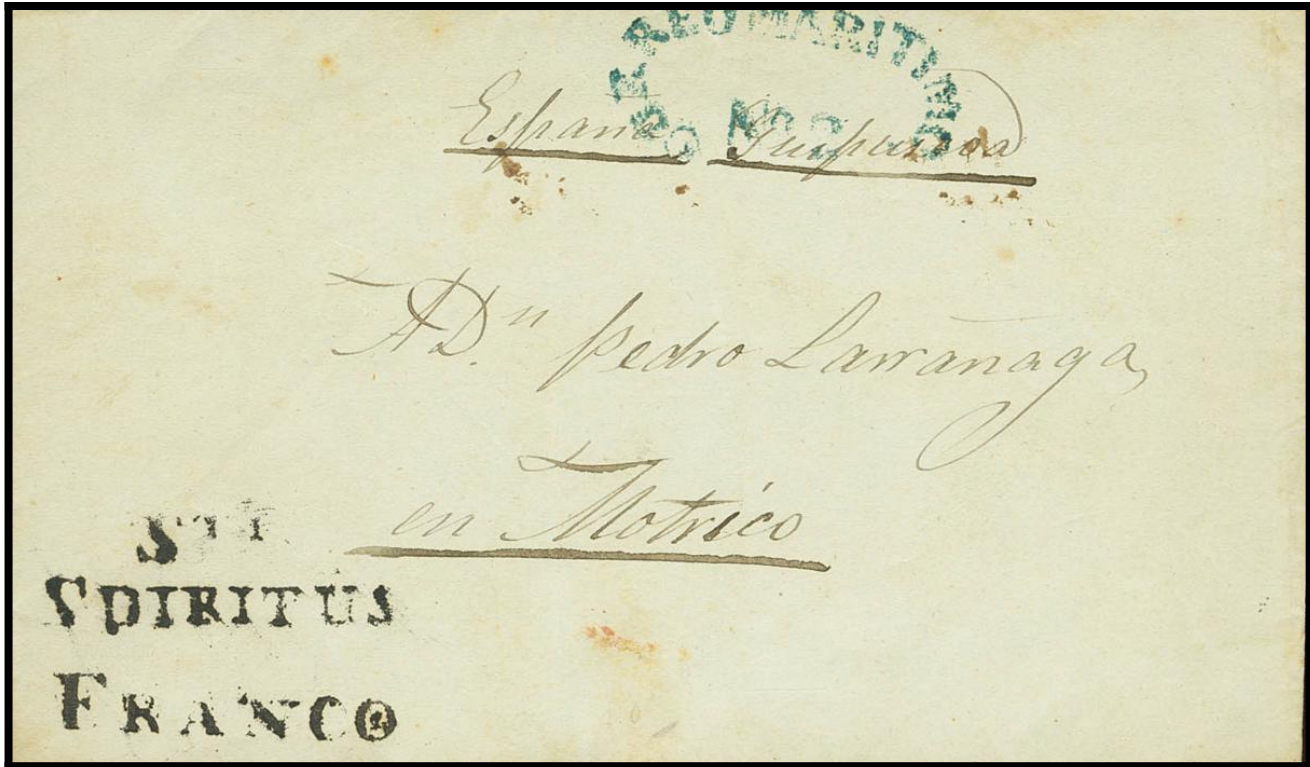 CORREO MARITIMO
Nº 2
España Guipuzcoa
A Dn. Pedro Larrañaga,
en Motrico
STI
SPIRITUS
FRANCO